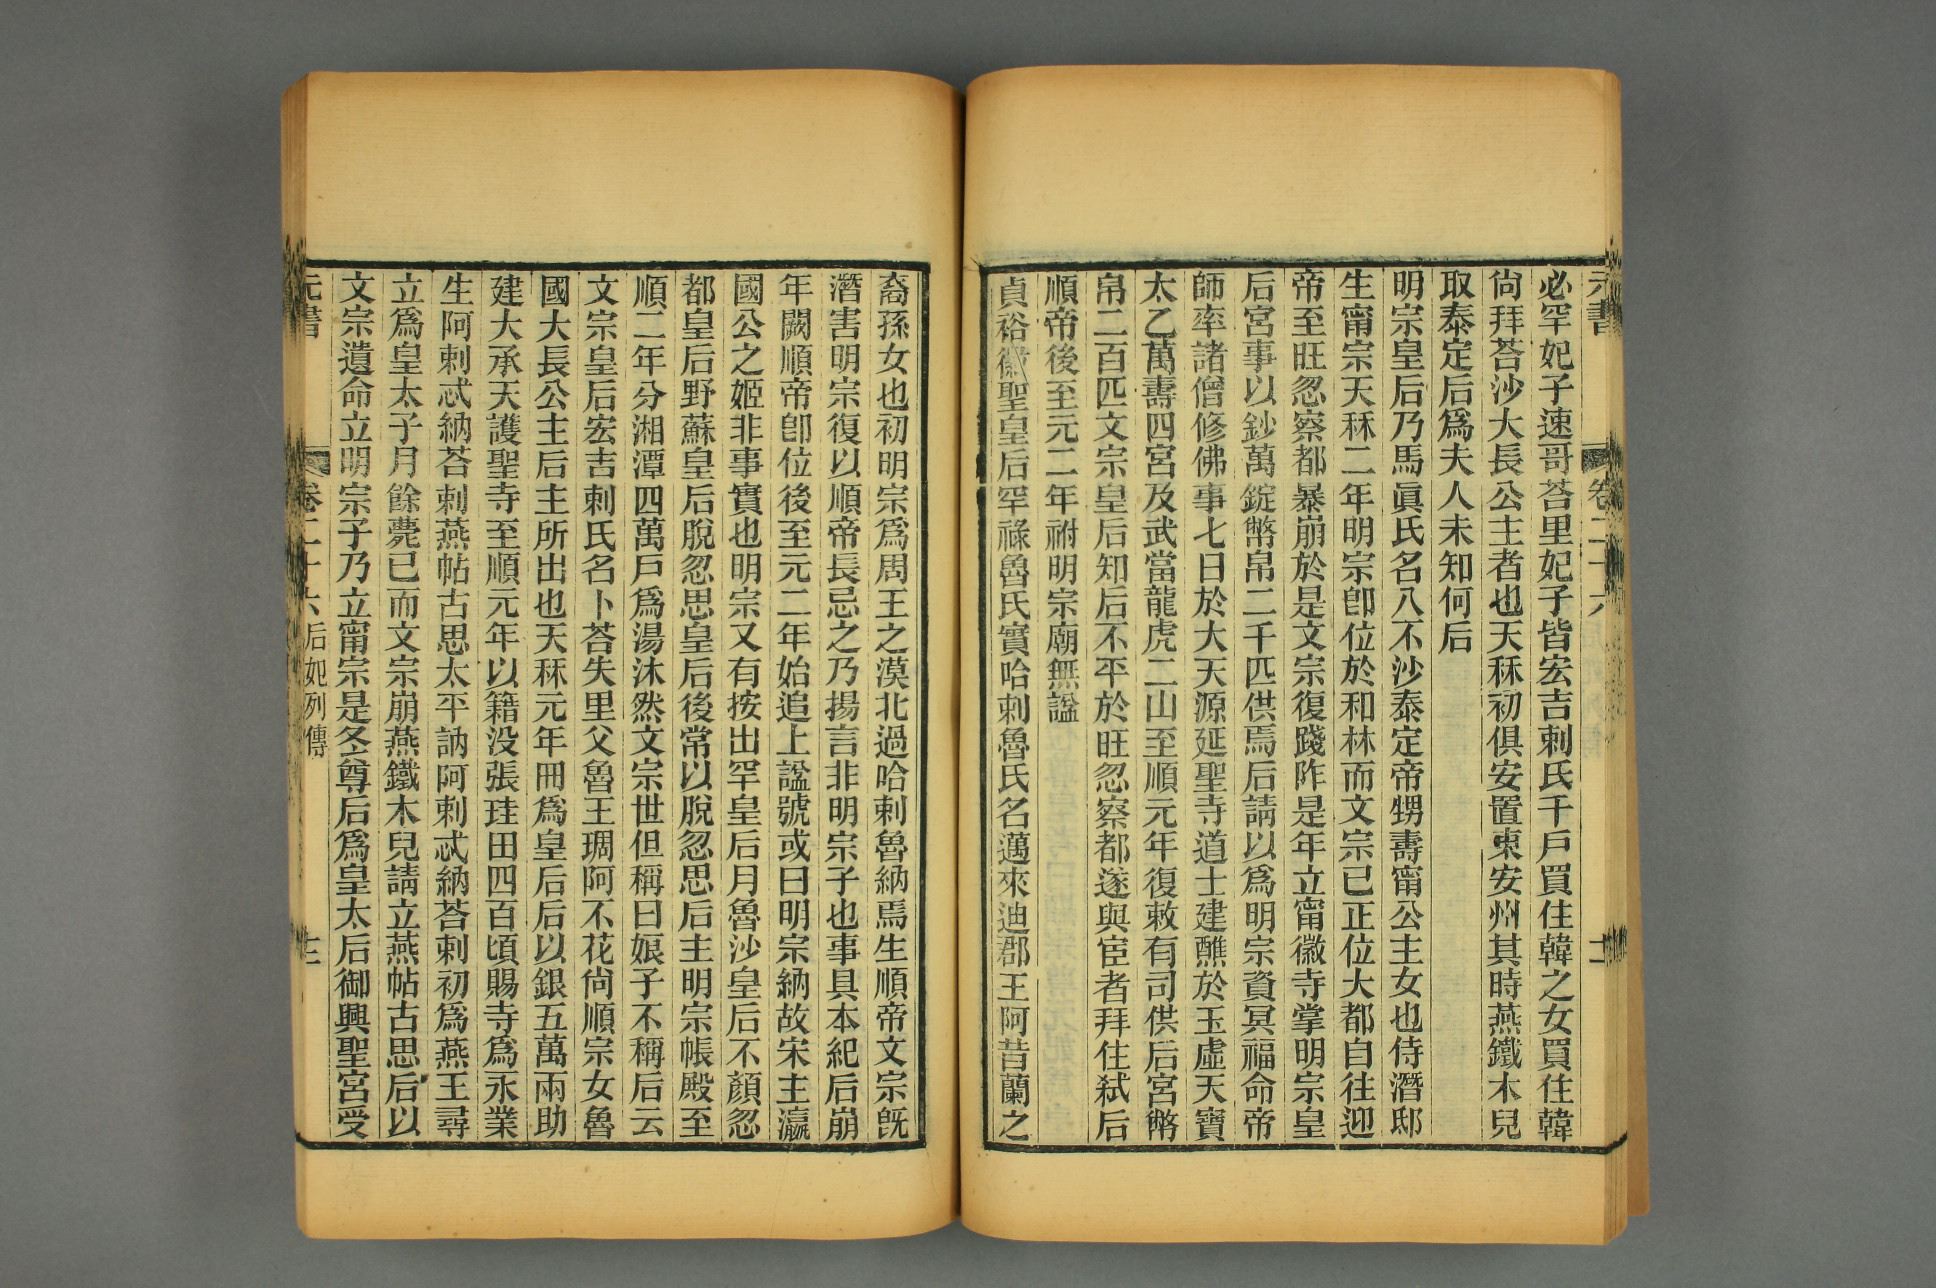 必罕妃子速哥荅里妃子皆宏吉剌氏千戶買住韓之女買住韓
尙拜荅沙大長公主者也天秝初俱安置東安州其時燕鐵木兒
取泰定后爲夫人未知何后
明宗皇后乃馬眞氏名八不沙泰定帝甥壽甯公主女也侍潛邸
生甯宗天秝二年明宗卽位於和林而文宗已正位大都自往迎
帝至旺忽察都暴崩於是文宗復踐阼是年立甯徽寺掌明宗皇
后宮事以鈔萬錠幣帛二千匹供焉后請以爲明宗資冥福命帝
師率諸僧修佛事七日於大天源延聖寺道士建醮於玉虛天寶
太乙萬壽四宮及武當龍虎二山至順元年復敕有司供后宮幣
帛二百匹文宗皇后知后不平於旺忽察都遂與宦者拜住弒后
順帝後至元二年祔明宗廟無謚
貞裕徽聖皇后罕祿魯氏實哈剌魯氏名邁來迪郡王阿昔蘭之
元書
卷二十六
裔孫女也初明宗爲周王之漠北過哈剌魯納焉生順帝文宗旣
潛害明宗復以順帝長忌之乃揚言非明宗子也事具本紀后崩
年闕順帝卽位後至元二年始追上謚號或曰明宗納故宋主瀛
國公之姬非事實也明宗又有按出罕皇后月魯沙皇后不顏忽
都皇后野蘇皇后脫忽思皇后後常以脫忽思后主明宗帳殿至
順二年分湘潭四萬戶爲湯沐然文宗世但稱曰娘子不稱后云
文宗皇后宏吉剌氏名卜荅失里父魯王琱阿不花尙順宗女魯
國大長公主后主所出也天秝元年冊爲皇后后以銀五萬兩助
建大承天護聖寺至順元年以籍没張珪田四百頃賜寺爲永業
生阿剌忒納荅剌燕帖古思太平訥阿剌忒納荅剌初爲燕王尋
立爲皇太子月餘薨已而文宗崩燕鐵木兒請立燕帖古思后以
文宗遺命立明宗子乃立甯宗是冬尊后爲皇太后御興聖宮受
元書
卷二十六
后妃列傳